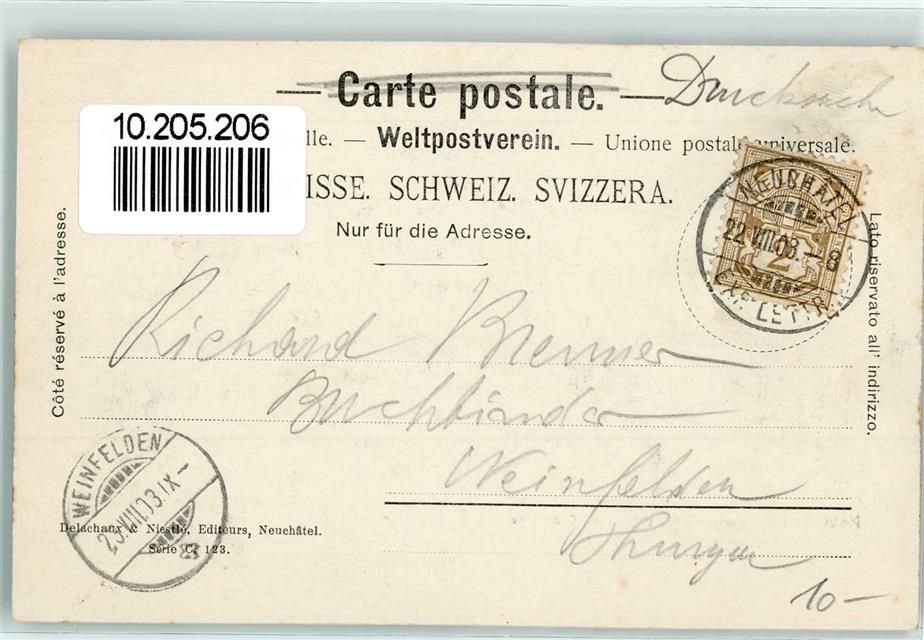 Carte postale.
Drucksache
10.205.206
lle. — Weltpostverein. — Unione postale universale.
ISSE. SCHWEIZ. SVIZZERA.
Nur für die Adresse.
NEUCHATEL
22.VIII.03.–8
LETTR.
Côté réservé à l'adresse.
Lato riservato all' indirizzo.
Richard Brenner
Buchbinder
Weinfelden
Thurgau
WEINFELDEN
23.VIII.03.IX–
Delachaux & Niestlé, Editeurs, Neuchâtel.
Série C. 123.
10–